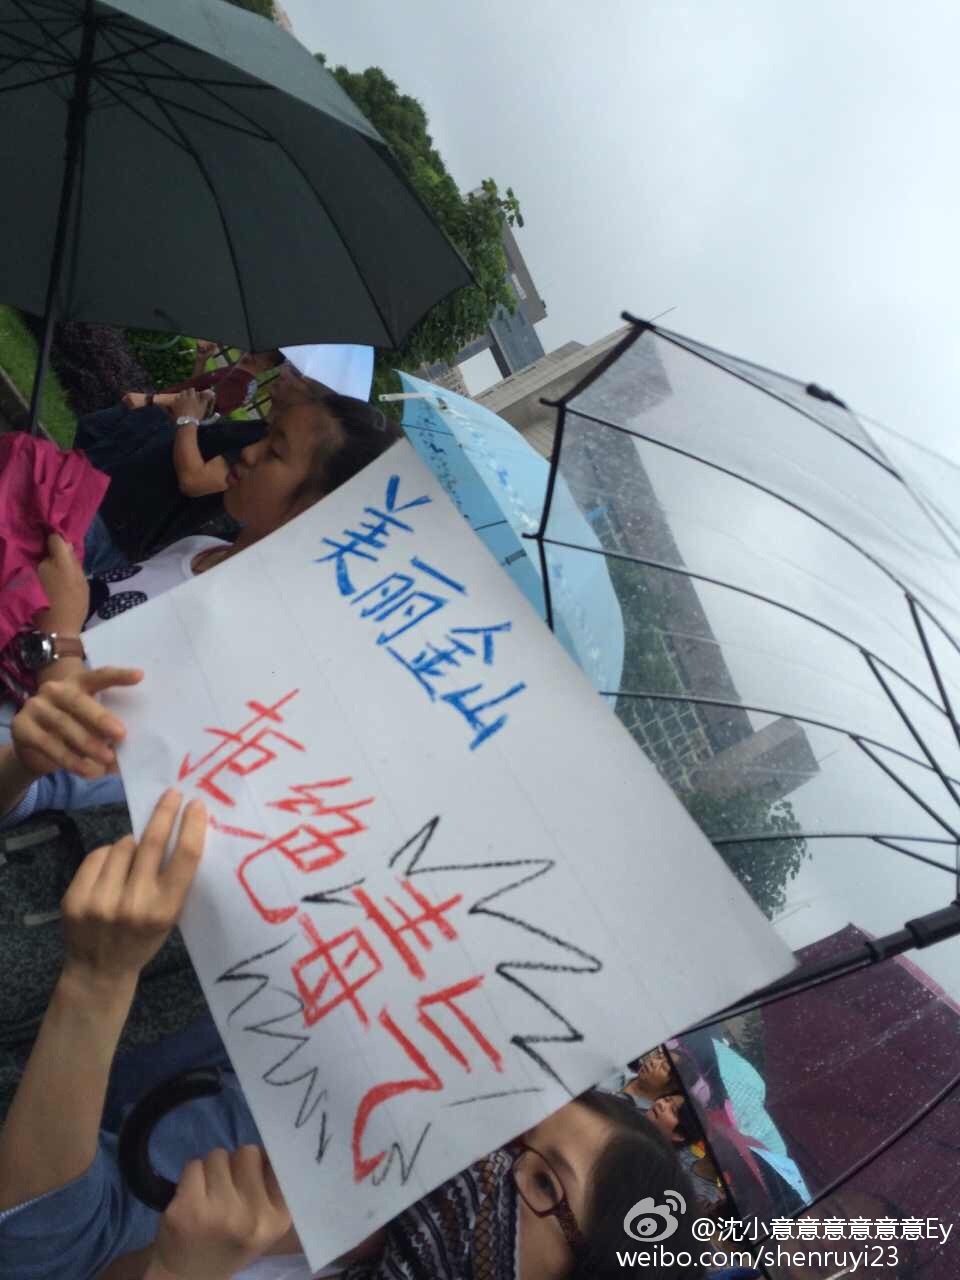 美丽金山
拒绝毒气
@沈小意意意意意意Ey
weibo.com/shenruyi23